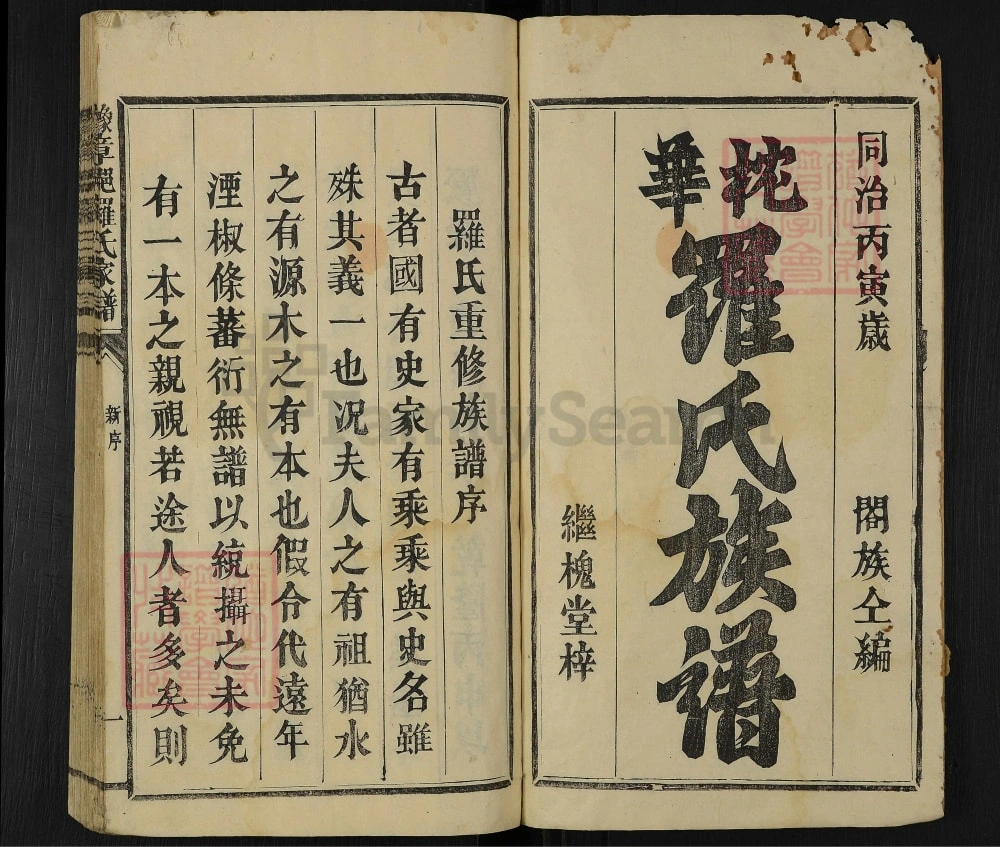 同治丙寅歲 閤族仝編
華坨
羅氏族譜
繼槐堂梓
羅氏重修族譜序
古者國有史家有乘乘與史名雖
殊其義一也況夫人之有祖猶水
之有源木之有本也假令代遠年
湮椒條蕃衍無譜以統攝之未免
有一本之親視若途人者多矣則
豫章羅氏家譜
新序
一
FamilySearch